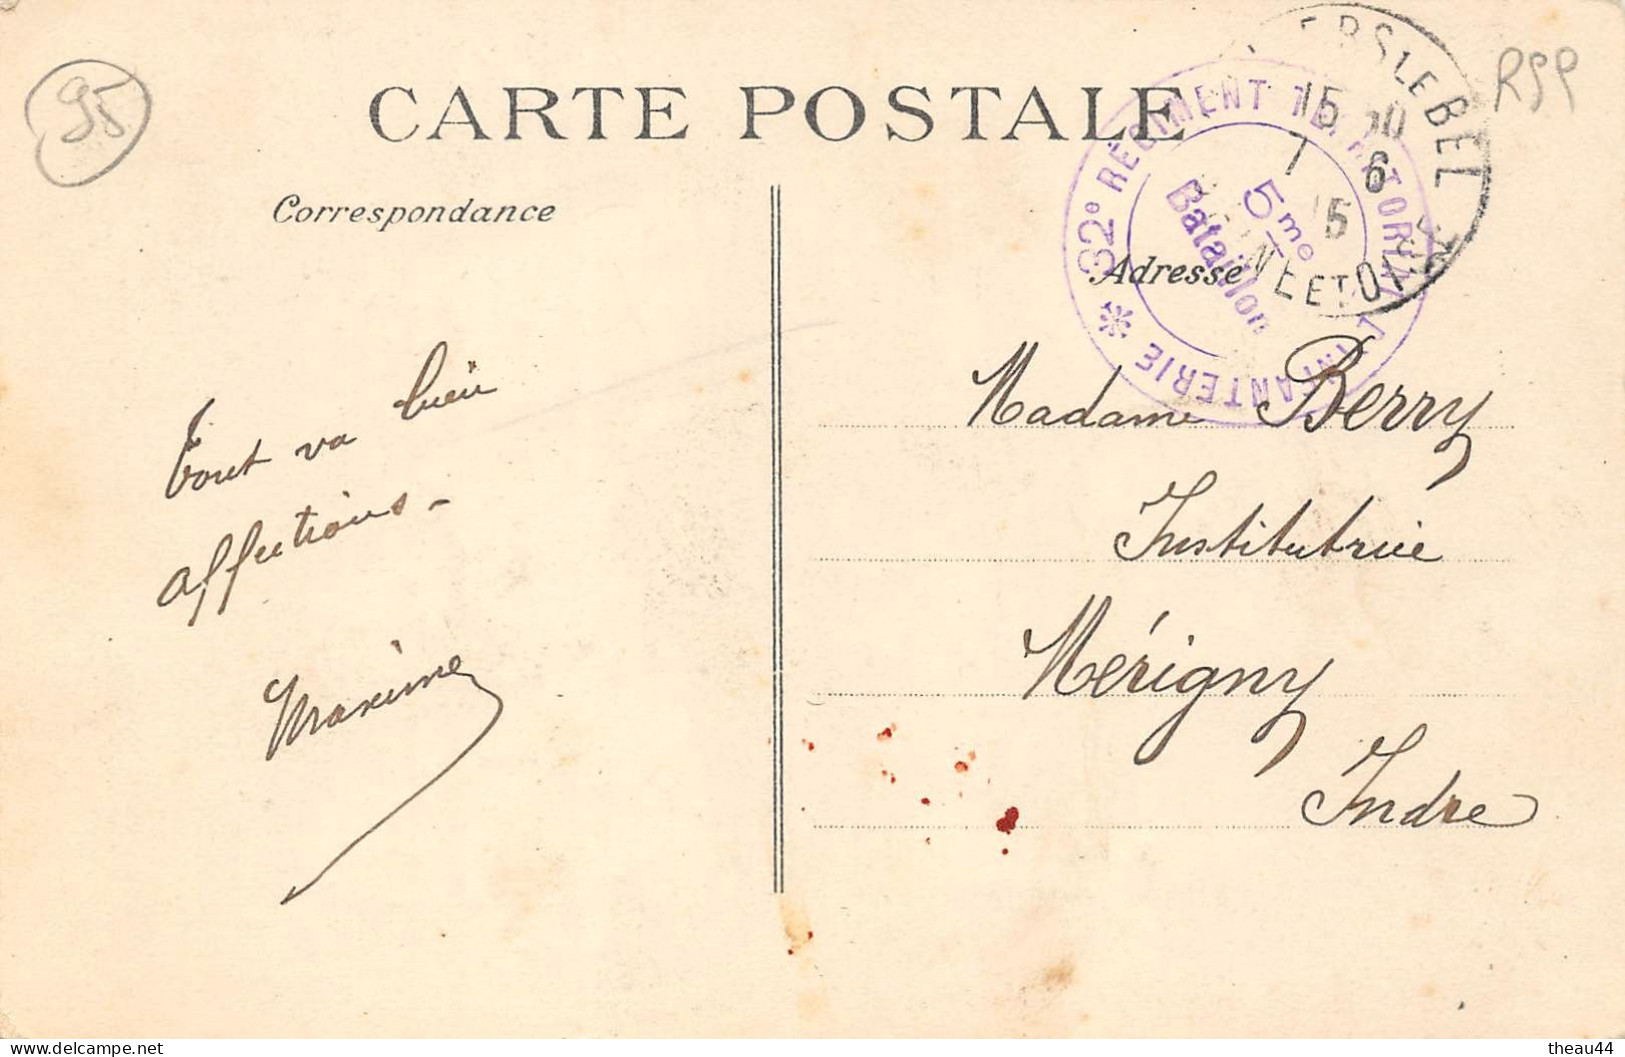 95
CARTE POSTALE
RSP
Correspondance
Adresse
32e RÉGIMENT TERRITORIAL INFANTERIE
5me
Bataillon
LE BEL
15 10
7 6
15
ET OISE
Tout va bien
affections -
Maxime
Madame Berry
Institutrice
Mérigny
Indre
Delcampe.net
theau44